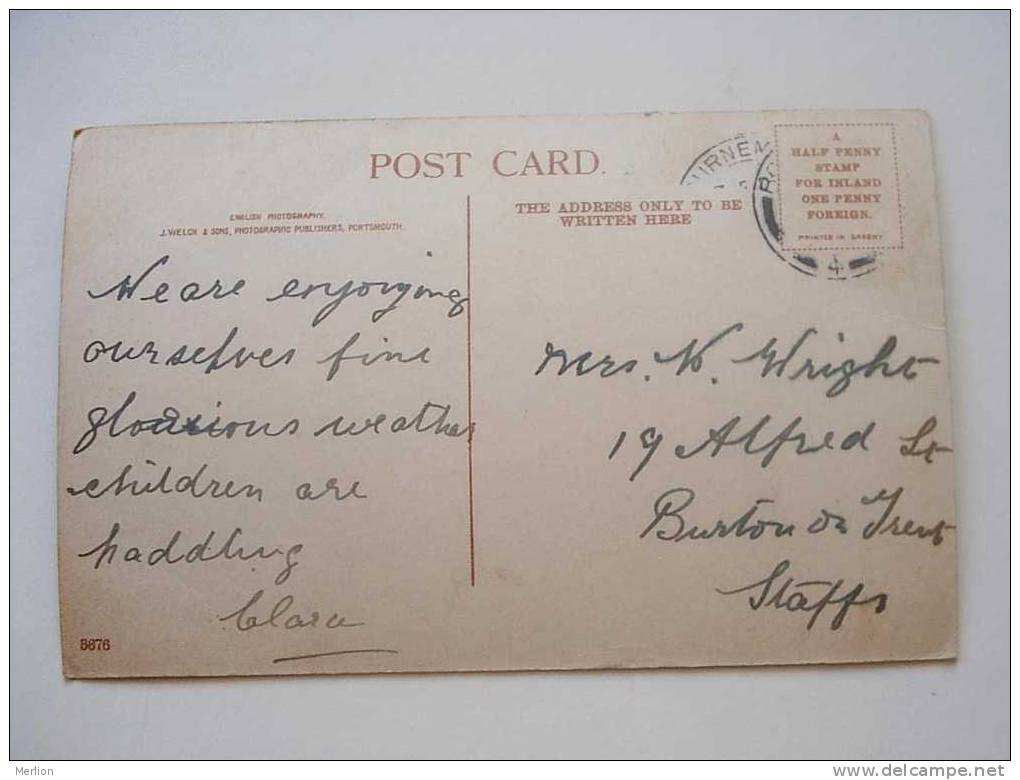 POST CARD.
ENGLISH PHOTOGRAPHY.
J. WELCH & SONS, PHOTOGRAPHIC PUBLISHERS, PORTSMOUTH.
THE ADDRESS ONLY TO BE
WRITTEN HERE
A
HALF PENNY
STAMP
FOR INLAND
ONE PENNY
FOREIGN.
PRINTED IN SAXONY
URNEM
4
We are enjoying
ourselves fine
glorious weather
children are
paddling
Clara
8676
Mrs. N. Wright
19 Alfred St
Burton on Trent
Staffs
Merlion
delcampe.net